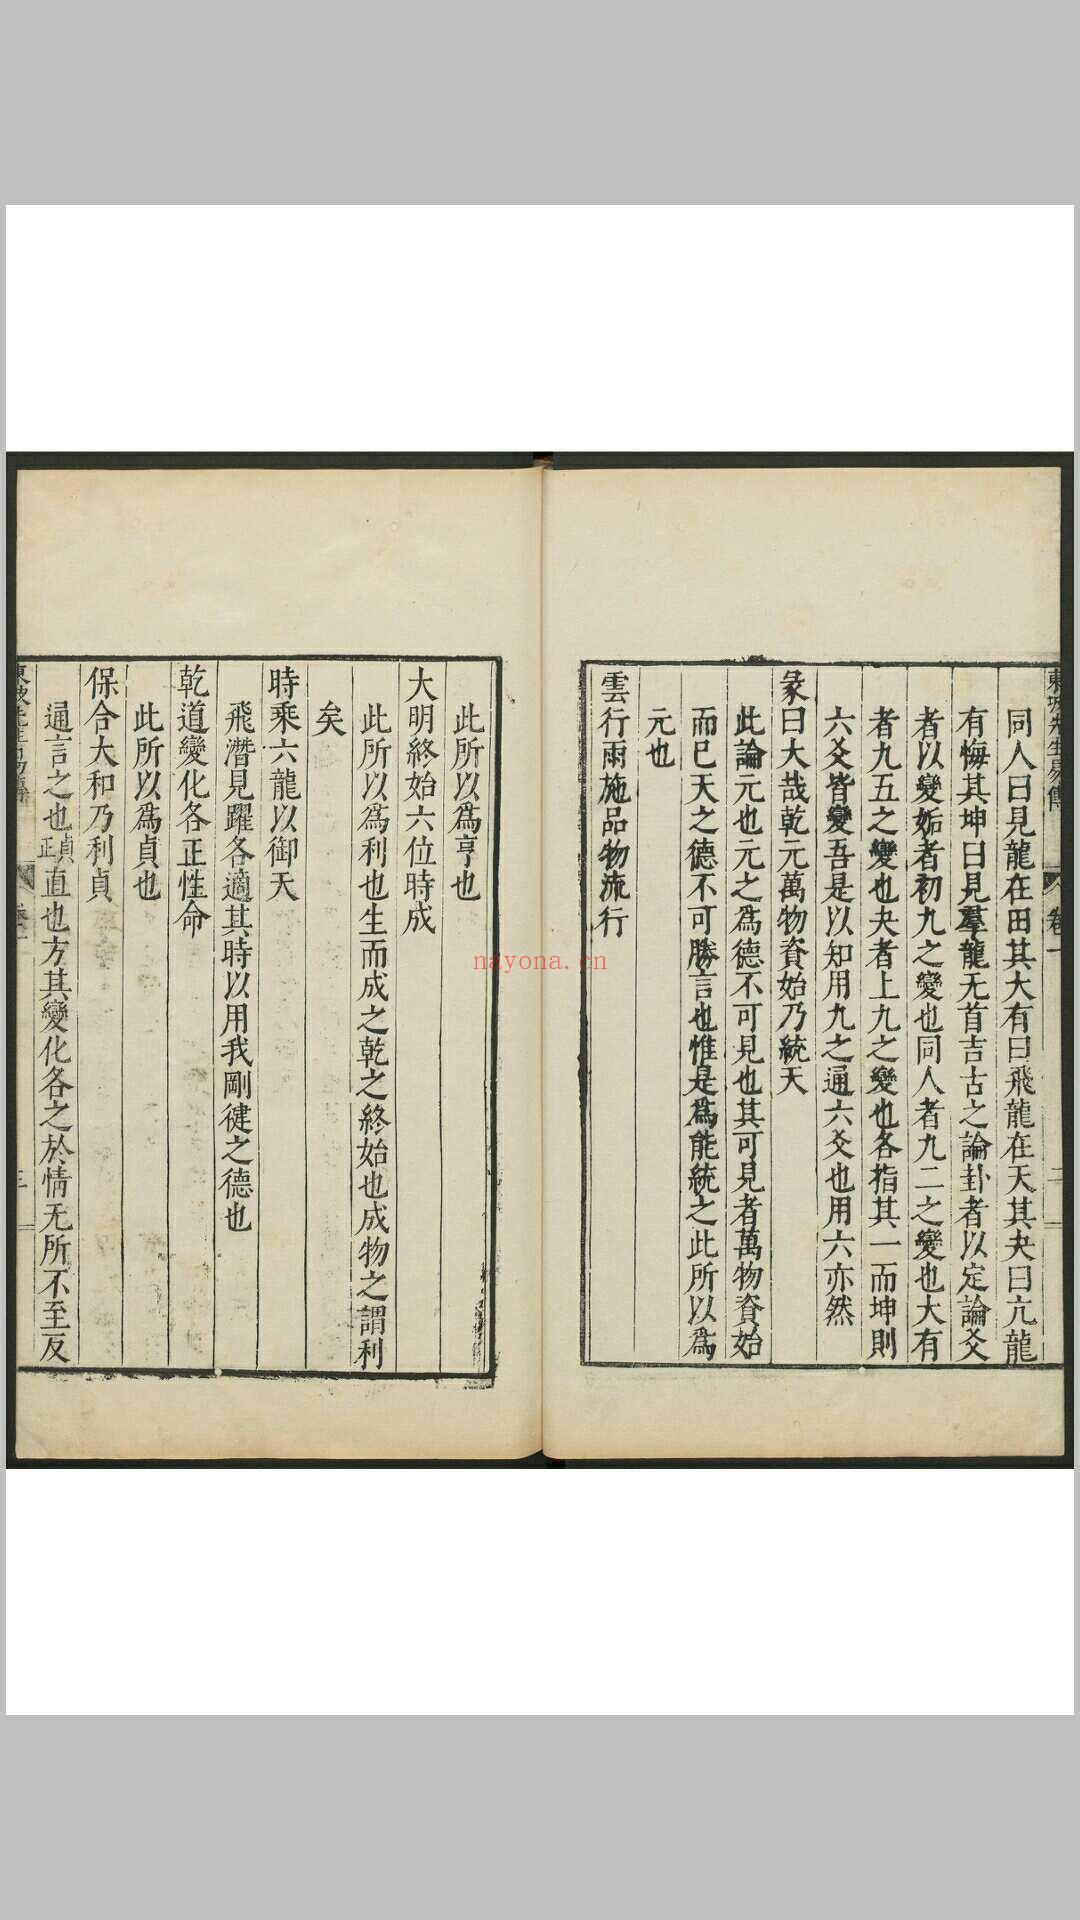 東坡先生易傳 卷一 二
同人曰見龍在田其大有曰飛龍在天其夬曰亢龍
有悔其坤曰見羣龍无首吉古之論卦者以定論爻
者以變姤者初九之變也同人者九二之變也大有
者九五之變也夬者上九之變也各指其一而坤則
六爻皆變吾是以知用九之通六爻也用六亦然
彖曰大哉乾元萬物資始乃統天
此論元也元之爲德不可見也其可見者萬物資始
而已天之德不可勝言也惟是爲能統之此所以爲
元也
雲行雨施品物流行
此所以爲亨也
大明終始六位時成
此所以爲利也生而成之乾之終始也成物之謂利
矣
時乘六龍以御天
飛潛見躍各適其時以用我剛健之德也
乾道變化各正性命
此所以爲貞也
保合大和乃利貞
通言之也貞正直也方其變化各之於情无所不至反
nayona.cn